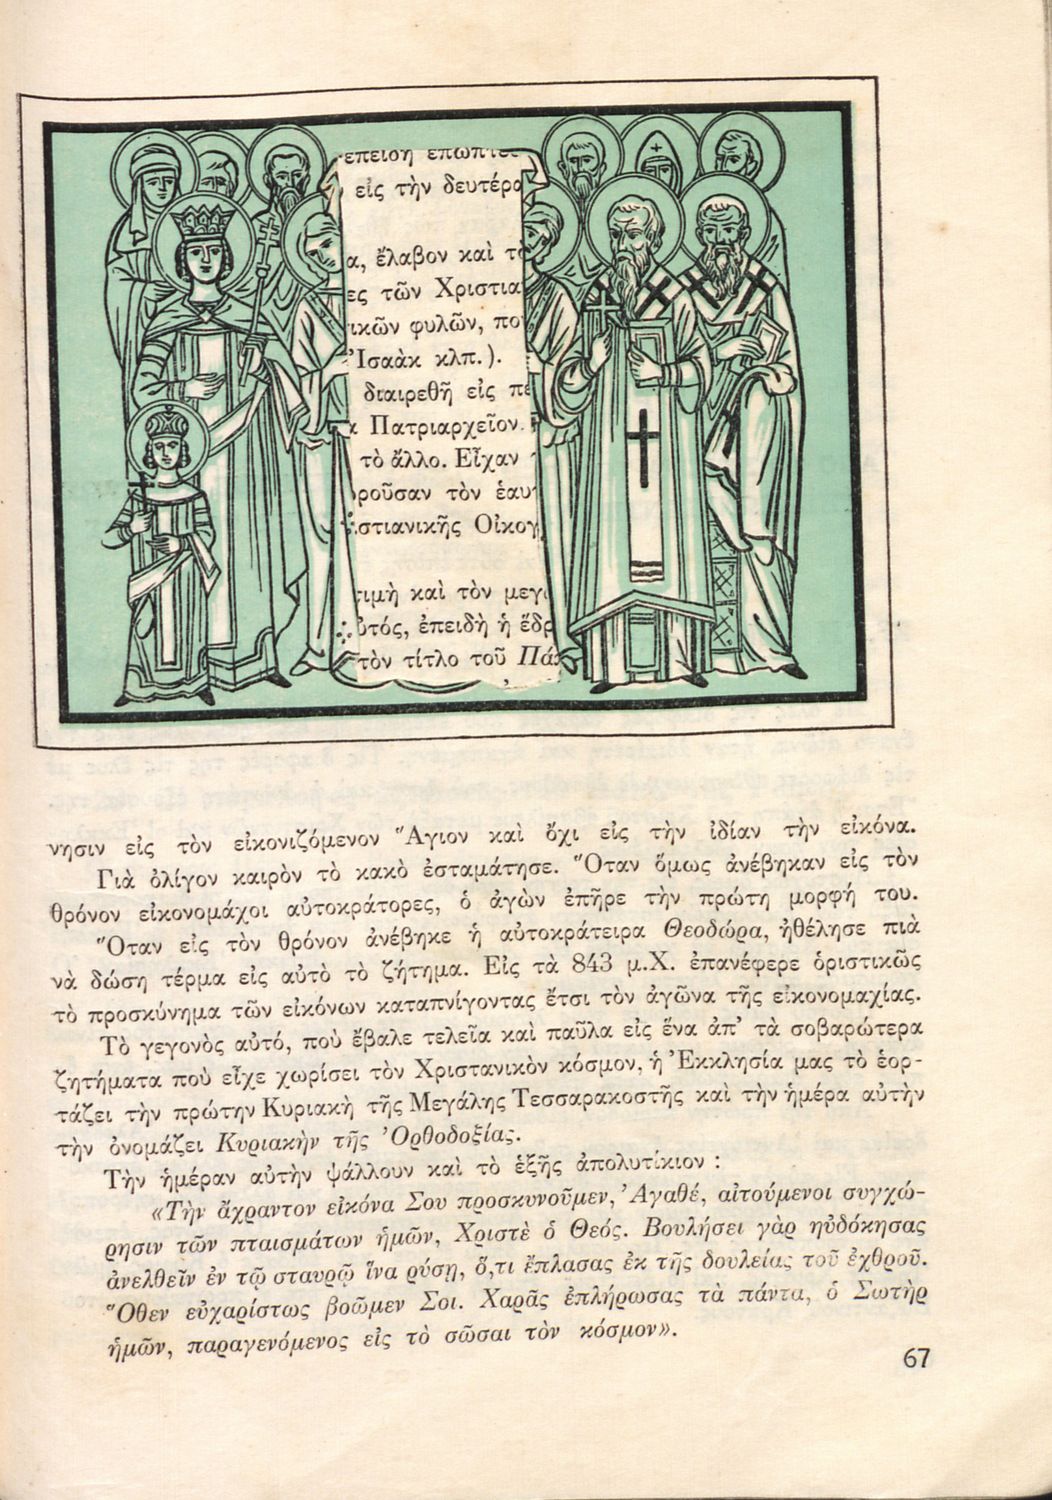 εἰς τὴν
ἔλαβον καὶ
τῶν
φυλῶν,
Ἰσαὰκ κλπ.).
διαιρεθῆ εἰς
Πατριαρχεῖον.
τὸ ἄλλο. Εἶχαν
τὸν
καὶ τὸν
ἐπειδὴ ἡ
τὸν τίτλο τοῦ
νησιν εἰς τὸν εἰκονιζόμενον Ἅγιον καὶ ὄχι εἰς τὴν ἰδίαν τὴν εἰκόνα.
Γιὰ ὀλίγον καιρὸν τὸ κακὸ ἐσταμάτησε. Ὅταν ὅμως ἀνέβηκαν εἰς τὸν
θρόνον εἰκονομάχοι αὐτοκράτορες, ὁ ἀγὼν ἐπῆρε τὴν πρώτη μορφή του.
Ὅταν εἰς τὸν θρόνον ἀνέβηκε ἡ αὐτοκράτειρα Θεοδώρα, ἠθέλησε πιὰ
νὰ δώση τέρμα εἰς αὐτὸ τὸ ζήτημα. Εἰς τὰ 843 μ.Χ. ἐπανέφερε ὁριστικῶς
τὸ προσκύνημα τῶν εἰκόνων καταπνίγοντας ἔτσι τὸν ἀγῶνα τῆς εἰκονομαχίας.
Τὸ γεγονὸς αὐτό, ποὺ ἔβαλε τελεία καὶ παῦλα εἰς ἕνα ἀπ’ τὰ σοβαρώτερα
ζητήματα ποὺ εἶχε χωρίσει τὸν Χριστανικὸν κόσμον, ἡ Ἐκκλησία μας τὸ ἑορ-
τάζει τὴν πρώτην Κυριακὴ τῆς Μεγάλης Τεσσαρακοστῆς καὶ τὴν ἡμέρα αὐτὴν
τὴν ὀνομάζει Κυριακὴν τῆς Ὀρθοδοξίας.
Τὴν ἡμέραν αὐτὴν ψάλλουν καὶ τὸ ἑξῆς ἀπολυτίκιον :
«Τὴν ἄχραντον εἰκόνα Σου προσκυνοῦμεν, Ἀγαθέ, αἰτούμενοι συγχώ-
ρησιν τῶν πταισμάτων ἡμῶν, Χριστὲ ὁ Θεός. Βουλήσει γὰρ ηὐδόκησας
ἀνελθεῖν ἐν τῷ σταυρῷ ἵνα ρύση, ὅ,τι ἔπλασας ἐκ τῆς δουλείας τοῦ ἐχθροῦ.
Ὅθεν εὐχαρίστως βοῶμεν Σοι. Χαρᾶς ἐπλήρωσας τὰ πάντα, ὁ Σωτὴρ
ἡμῶν, παραγενόμενος εἰς τὸ σῶσαι τὸν κόσμον».
67